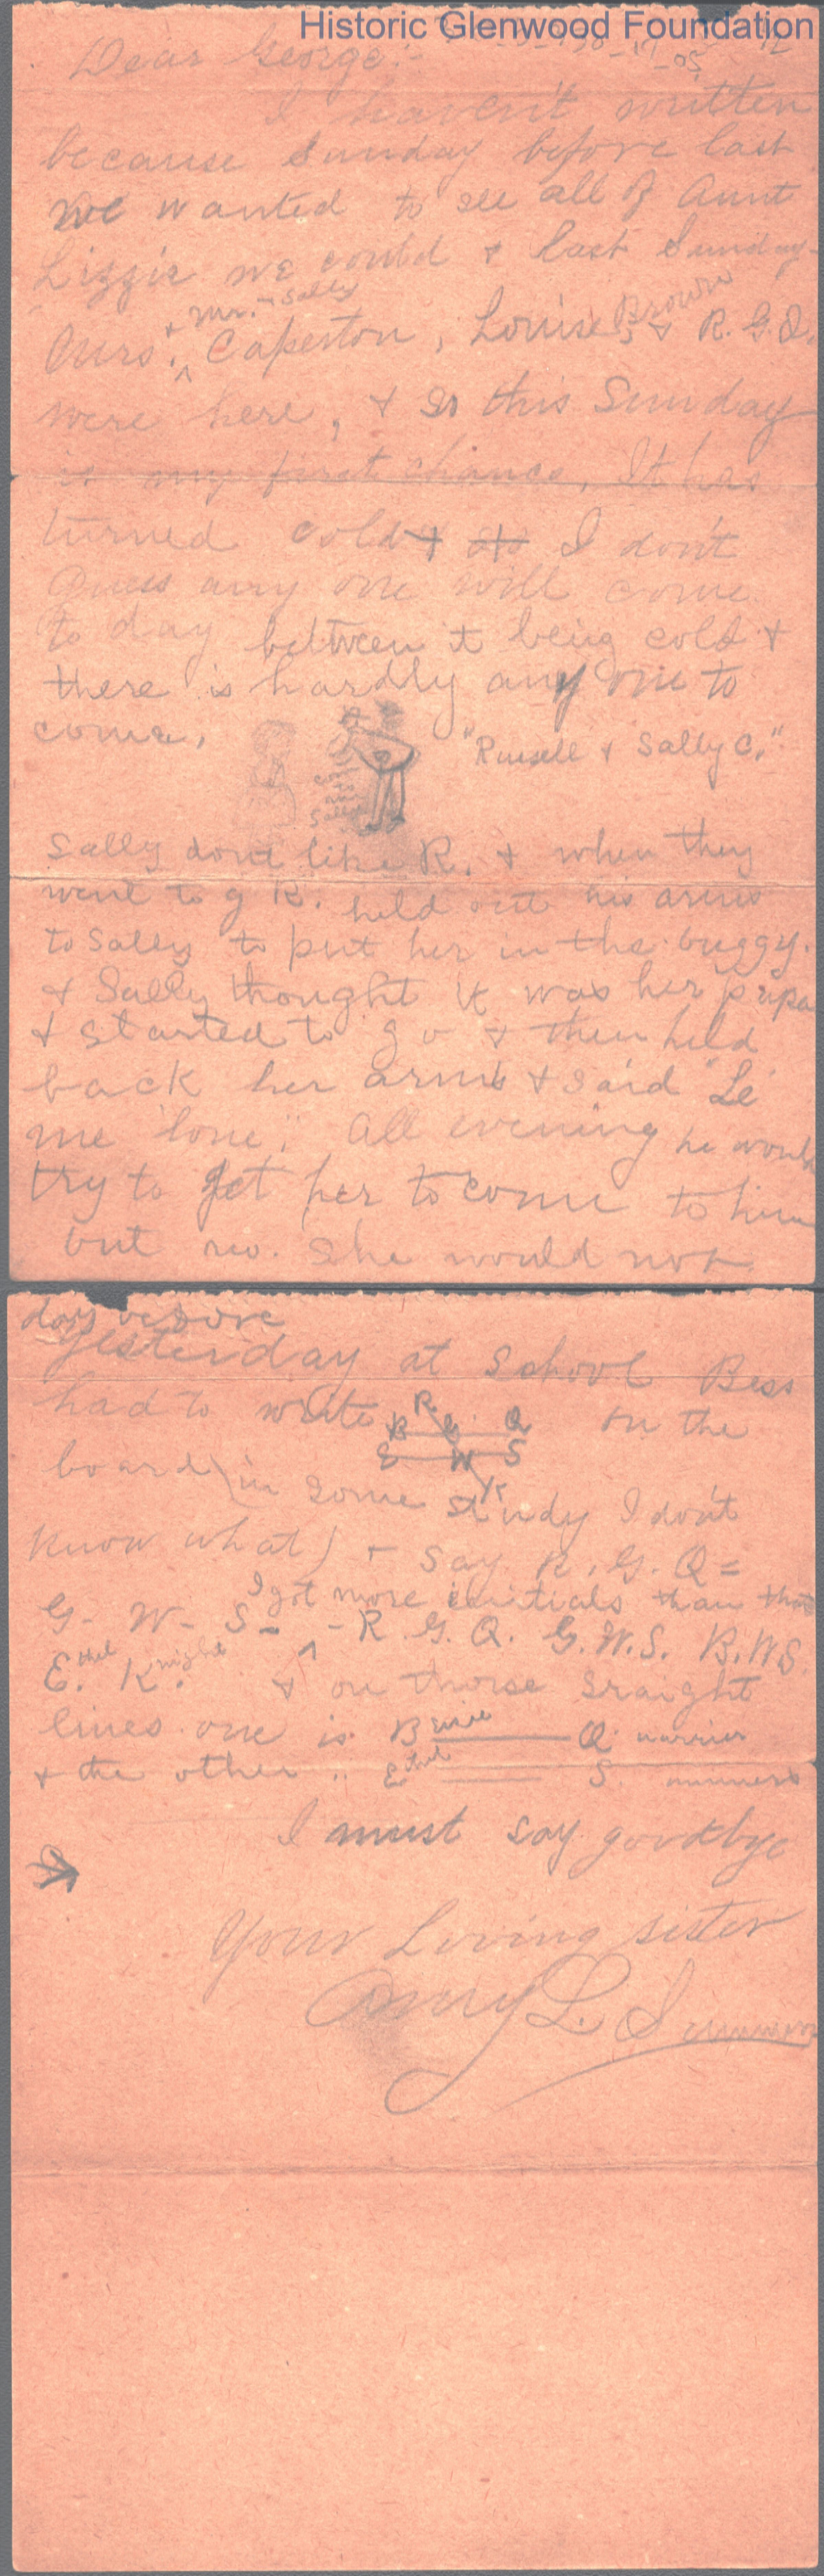 Historic Glenwood Foundation
Dear George:-
I haven't written
because Sunday before last
we wanted to see all of Aunt
Lizzie we could & last Sunday
+ Mr. - Sally
Brown
Mrs. ^ Caperton, Louise, & R. G. Q.
were here, & so this Sunday
is my first chance. It has
turned cold & I don't
Guess any one will come
to day between it being cold &
there is hardly any one to
come.
"Russell & Sally C."
Sally dont like R. & when they
went to g R. held out his arms
to Sally to put her in the buggy.
& Sally thought it was her papa
& started to go & then held
back her arms & said "Le
me 'lone". All evening he would
try to get her to come to him
but no. She would not
day before
Yesterday at School Bess
had to write
R.
B G. Q
on the
E W S
K
board (in some study I don't
know what) & say R. G. Q =
I got more initials than that
G- W- S- ^ - R. G. Q. G.W.S. B.W.S.
E.thel K.night & on those sraight
lines one is B Q. marries
& the other .. Ethel S.
I must say goodbye
Your Loving sister
Amy L.